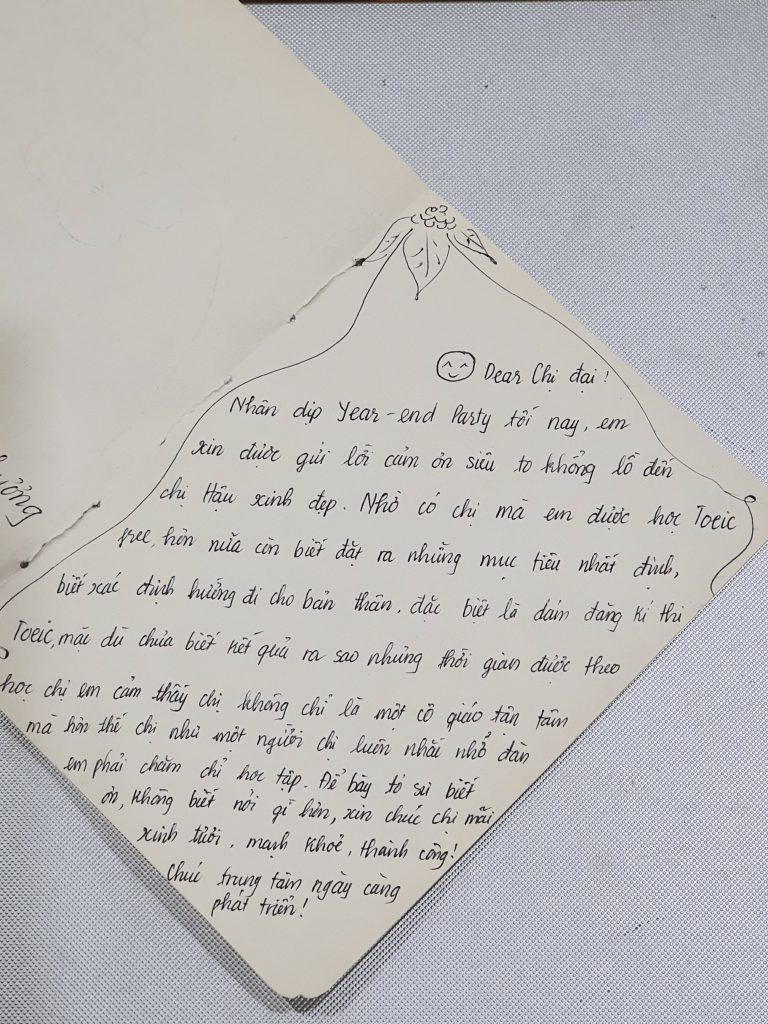 Dear Chị đại !
Nhân dịp Year-end Party tối nay, em
xin được gửi lời cảm ơn siêu to khổng lồ đến
chị Hậu xinh đẹp. Nhờ có chị mà em được học Toeic
free, hơn nữa còn biết đặt ra những mục tiêu nhất định,
biết xác định hướng đi cho bản thân, đặc biệt là dám đăng kí thi
Toeic, mặc dù chưa biết kết quả ra sao nhưng thời gian được theo
học chị em cảm thấy chị không chỉ là một cô giáo tận tâm
mà hơn thế chị như một người chị luôn nhắc nhở đàn
em phải chăm chỉ học tập. Để bày tỏ sự biết
ơn, không biết nói gì hơn, xin chúc chị mãi
xinh tươi, mạnh khoẻ, thành công!
Chúc trung tâm ngày càng
phát triển!